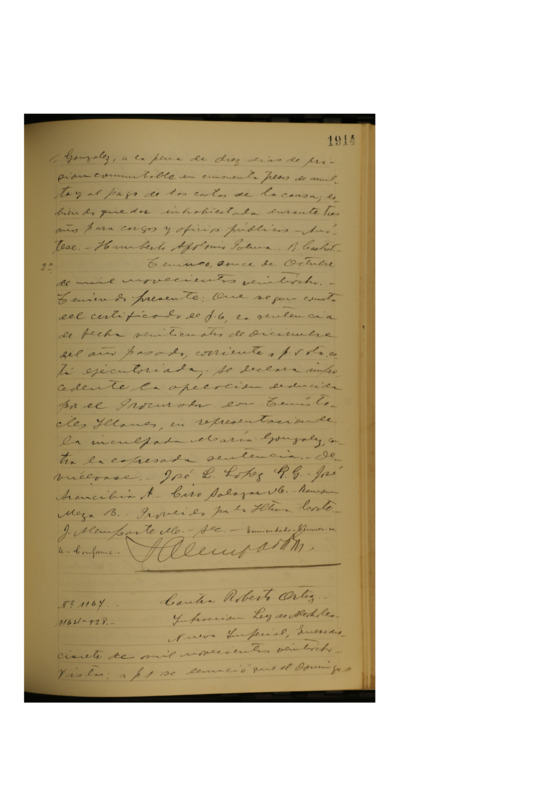 1914
Gonzalez, a la pena de diez dias de pri-
sion conmutable en cincuenta pesos de mul-
ta y al pago de las costas de la causa, de-
biendo quedar inhabilitada durante tres
años para cargos y oficios públicos - Anó-
tese. - Humberto
2ª Temuco, once de Octubre
de mil novecientos veintiocho. -
Teniendo presente: Que segun consta
del certificado de f. 6, la sentencia
de fecha veinticuatro de Diciembre
del año pasado, corriente a f. 5 vta, es-
tá ejecutoriada, se declara impro
cedente la apelacion deducida
por el Procurador don Temísto-
cles Illanes, en representacion de
la inculpada María Gonzalez, con-
tra la espresada sentencia. - De-
vuélvase. - José L. Lopez R. G. - José
Arancibia A. - Ciro Salazar M. - Roman
Mega B. - Proveido por la Iltma Corte -
J. Alemparte M. - Sec. -
Conforme. -
Nº 1164. - Contra Roberto Ortiz. -
1164-928. - Infraccion Ley de Alcoholes. -
Nueva Imperial, Enero die-
cisiete de mil novecientos veintiocho. -
Vistos: a f. 1 se denunció que el Domingo